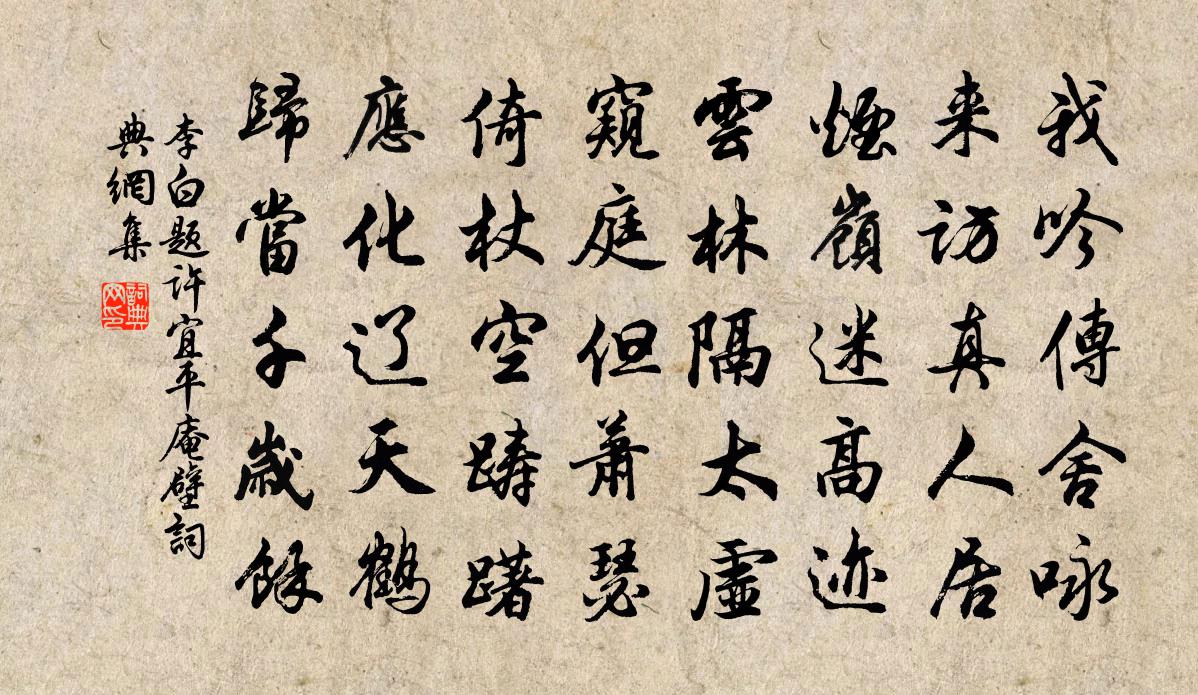 我吟傳舍咏
来访真人居
煙嶺迷高迹
雲林隔太虛
窺庭但蕭瑟
倚杖空躊躇
應化辽天鶴
歸當千歲餘
李白题许宜平庵壁詞
典網集
詞典
网印